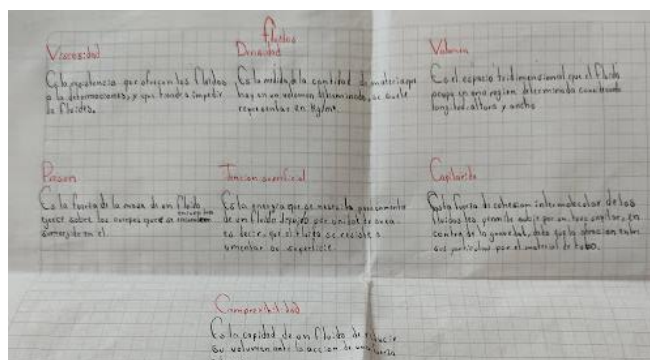 fluidos
Viscosidad
Es la resistencia que ofrecen los fluidos
a la deformaciones, y que tiende a impedir
la fluides.
Densidad
Es la medida, a la cantidad de materia que
hay en un volumen determinado, se suele
representar en Kg/m³.
Volumen
Es el espacio tridimensional que el fluido
ocupa en una region determinada
longitud, altura y ancho
Presion
Es la fuerza de la masa de un fluido
ejerce sobre los cuerpos que se encuentran
en el.
Tension superficial
Es la energia que se necesita para aumentar
de un fluido por unidad de area
es decir, que el fluido se resiste a
umentar su superficie.
Capilaridad
Es la fuerza de cohesion intermolecular de los
fluidos les permite subir por un tubo capilar, en
contra de la gravedad, dado que la atraccion entre
sus particulas por el material de tubo.
Compresibilidad
Es la capidad de un fluido de reducir
su volumen ante la accion de una fuerza